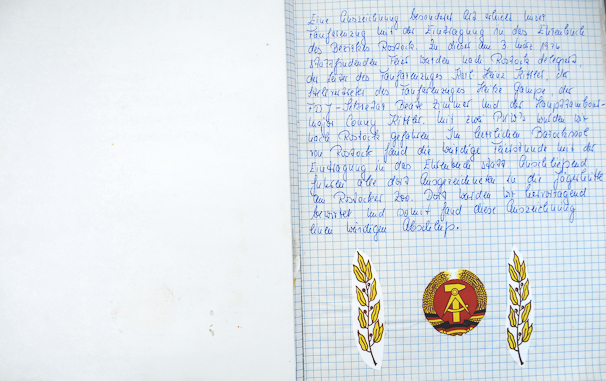 Eine Auszeichnung besonderer Art erhielt unser
Fanfarenzug mit der Eintragung in das Ehrenbuch
des Bezirkes Rostock. Zu dieser am 3. März 1976
stattfindenden Feier wurden nach Rostock delegiert,
der Leiter des Fanfarenzuges Karl Heinz Kittler, der
Stellvertreter des Fanfarenzuges Heiko Gampe, der
FDJ-Sekretär Beate Zimmer und der Haupttambour-
major Conny Kittler. Mit zwei PKW's wurden wir
nach Rostock gefahren. Im herrlichen Barocksaal
von Rostock fand die würdige Feierstunde mit der
Eintragung in das Ehrenbuch statt. Anschließend
fuhren alle dort Ausgezeichneten in die Jägerhütte
am Rostocker Zoo. Dort wurden wir hervorragend
bewirtet und somit fand diese Auszeichnung
einen würdigen Abschluß.